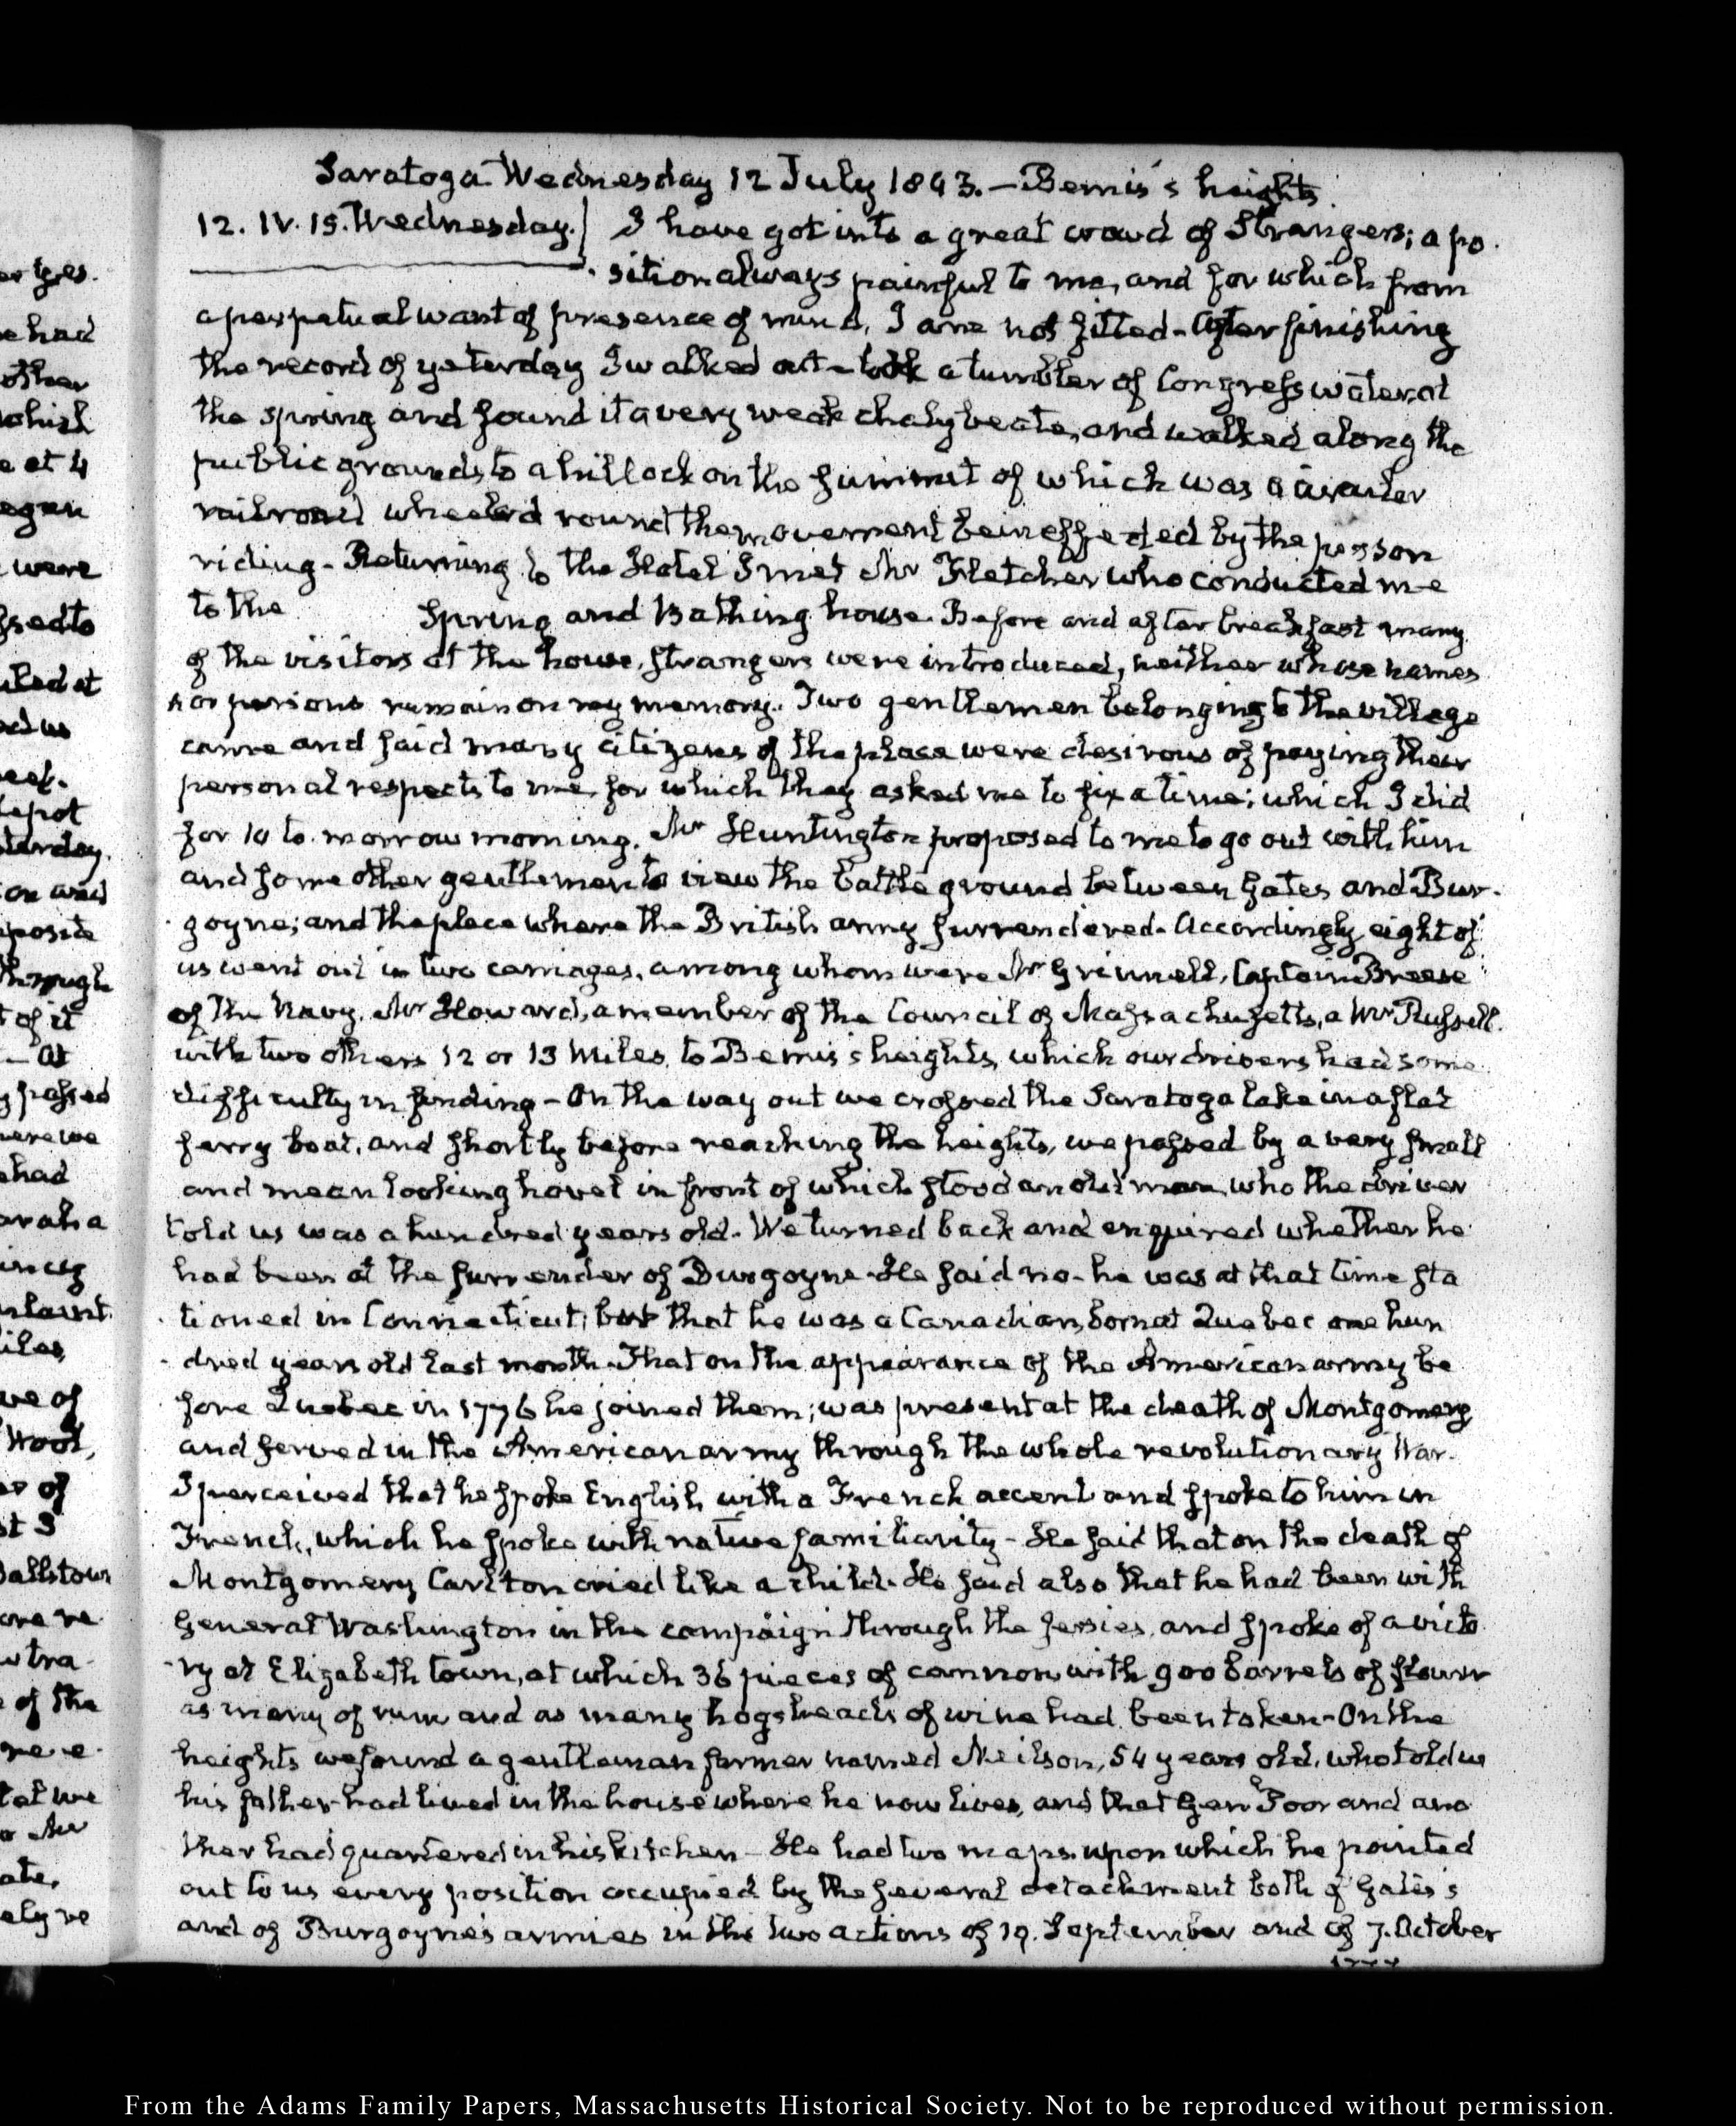 Saratoga Wednesday 12 July 1843. — Bemis's heights.
12. IV. 15. Wednesday. I have got into a great crowd of Strangers; a po-
sition always painful to me, and for which from
a perpetual want of presence of mind, I am not fitted - After finishing
the record of yesterday I walked out - took a tumbler of Congress water at
the spring and found it a very weak chalybeate, and walked along the
public grounds to a hillock on the summit of which was a circular
railroad wheeled round the movement being effected by the person
riding - Returning to the Hotel I met Mr Fletcher who conducted me
to the Spring and Bathing house. Before and after breakfast many
of the visitors at the house, strangers were introduced, neither whose names
nor persons remain on my memory. Two gentlemen belonging to the village
came and said many citizens of the place were desirous of paying their
personal respects to me, for which they asked me to fix a time; which I did
for 10 to-morrow morning. Mr Huntington proposed to me to go out with him
and some other gentlemen to view the battle ground between Gates and Bur-
goyne; and the place where the British army surrendered - Accordingly eight of
us went out in two carriages, among whom were Mr Grinnell, Captain Breese
of the Navy, Mr Howard, a member of the Council of Massachusetts, a Mr Russell
with two others 12 or 13 Miles, to Bemis's heights, which our drivers had some
difficulty in finding - On the way out we crossed the Saratoga lake in a flat
ferry boat, and shortly before reaching the heights, we passed by a very small
and mean looking hovel in front of which stood an old man, who the driver
told us was a hundred years old. We turned back and enquired whether he
had been at the surrender of Burgoyne - He said no - he was at that time sta
tioned in Connecticut; but that he was a Canadian, born at Quebec one hun
dred years old last month. That on the appearance of the American army be
fore Quebec in 1776 he joined them; was present at the death of Montgomery
and served in the American army through the whole revolutionary War.
I perceived that he spoke English with a French accent and spoke to him in
French, which he spoke with native familiarity - He said that on the death of
Montgomery Carlton cried like a child. He said also that he had been with
General Washington in the campaign through the Jersies, and spoke of a victo
ry at Elizabeth town, at which 36 pieces of cannon with 900 barrels of flour
as many of rum and as many hogsheads of wine had been taken - On the
heights we found a gentleman farmer named Neilson, 54 years old, who told us
his father had lived in the house where he now lives, and that Genl Poor and ano
ther had quartered in his kitchen - He had two maps upon which he pointed
out to us every position occupied by the several detachment both of Gates's
and of Burgoyne's armies in the two actions of 19. September and of 7. October
1777
From the Adams Family Papers, Massachusetts Historical Society. Not to be reproduced without permission.